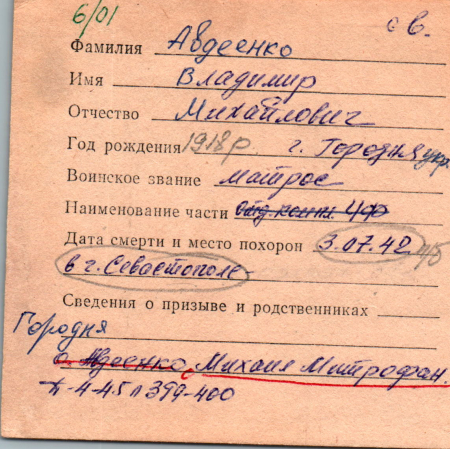 6/01 св.
Фамилия Авдеенко
Имя Владимир
Отчество Михайлович
Год рождения 1918 р. г. Городня укр
Воинское звание матрос
Наименование части Отд. компл. ЧФ
Дата смерти и место похорон 3.07.42 ч/б
в г. Севастополе
Сведения о призыве и родственниках
Городня
о. Авдеенко Михаил Митрофан.
д-445 л 399-400